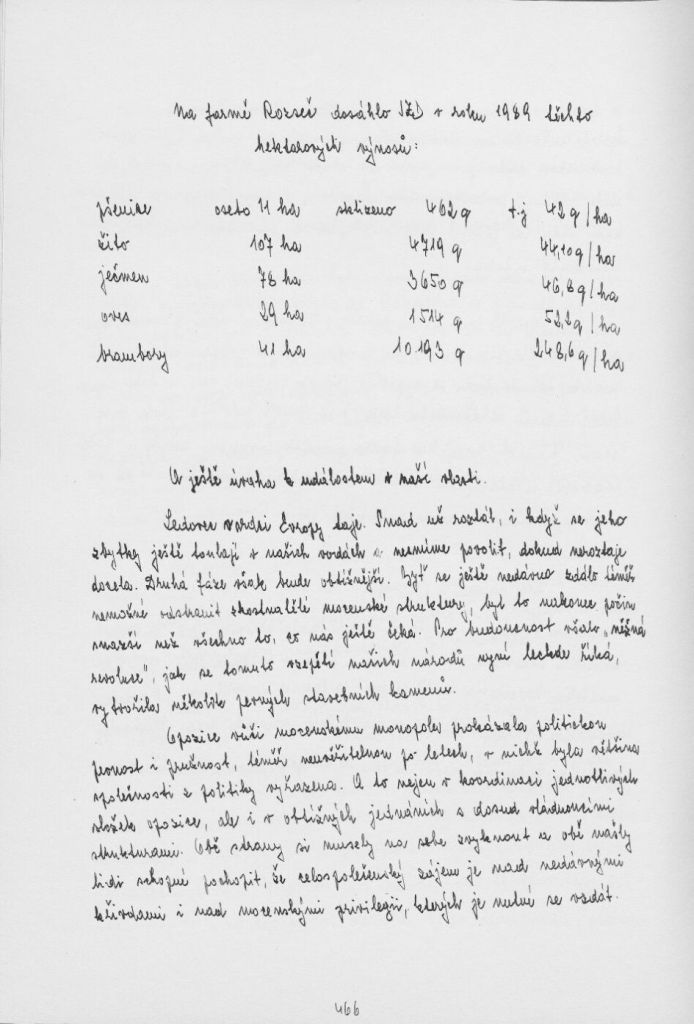 Na farmě Rozseč dosáhlo JZD v roku 1989 těchto
hektarových výnosů:
pšenice oseto 11 ha sklizeno 462 q t.j 42 q/ha
žito 107 ha 4719 q 44,10 q/ha
ječmen 78 ha 3650 q 46,8 q/ha
oves 29 ha 1514 q 52,2 q/ha
brambory 41 ha 10.193 q 248,6 q/ha
A ještě úvaha k událostem v naší vlasti.
Ledovec v srdci Evropy taje. Snad už roztál, i když se jeho
zbytky ještě toulají v našich vodách a nesmíme povolit, dokud neroztaje
docela. Druhá fáze však bude obtížnější. Byť se ještě nedávno zdálo téměř
nemožné odstranit zkostnatělé mocenské struktury, byl to nakonec počin
snazší než všechno to, co nás ještě čeká. Pro budoucnost však „něžná
revoluce", jak se tomuto vzepětí našich národů nyní leckde říká,
vytvořila několik pevných stavebních kamenů.
Opozice vůči mocenskému monopolu prokázala politickou
pevnost i pružnost, téměř neuvěřitelnou po letech, v nichž byla většina
společnosti z politiky vyřazena. A to nejen v koordinaci jednotlivých
složek opozice, ale i v obtížných jednáních s dosud vládnoucími
strukturami. Obě strany si musely na sebe zvyknout a obě našly
lidi schopné pochopit, že celospolečenský zájem je nad nedávnými
křivdami i nad mocenskými privilegii, kterých je nutné se vzdát.
466